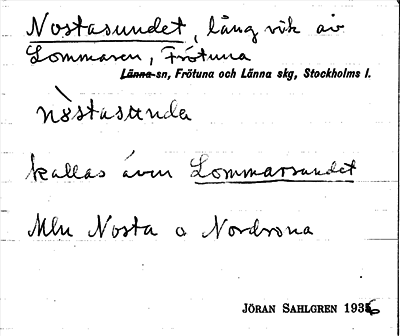 Nostasundet, lång vik av
Lommaren, Frötuna
Länna-sn, Frötuna och Länna skg, Stockholms l.
nòstasunda
kallas även Lommarsundet
Mln Nosta o Nordrona
JÖRAN SAHLGREN 1936